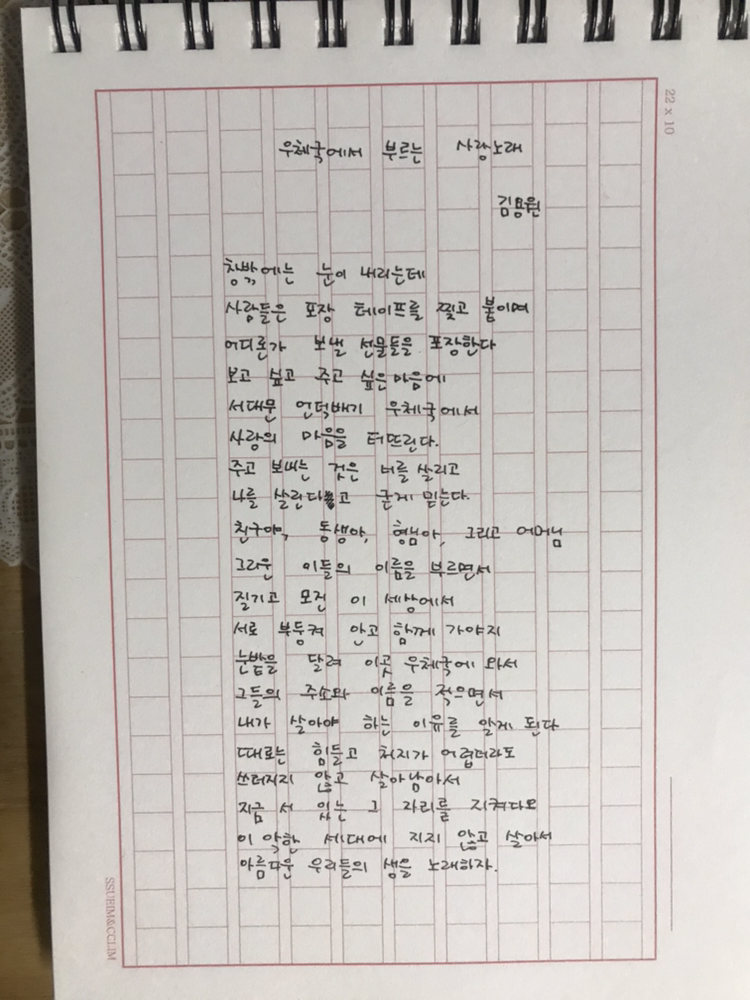 우체국에서 부르는 사랑노래
김용원
창밖에는 눈이 내리는데
사람들은 포장 테이프를 찢고 붙이며
어디론가 보낼 선물들을 포장한다
보고 싶고 주고 싶은 마음에
서대문 언덕배기 우체국에서
사랑의 마음을 터뜨린다.
주고 보내는 것은 너를 살리고
나를 살린다고 굳게 믿는다.
친구야, 동생아, 형님아, 그리고 어머님
그리운 이들의 이름을 부르면서
질기고 모진 이 세상에서
서로 부둥켜 안고 함께 가야지
눈밭을 달려 이곳 우체국에 와서
그들의 주소와 이름을 적으면서
내가 살아야 하는 이유를 알게 된다
때로는 힘들고 처지가 어렵더라도
쓰러지지 않고 살아남아서
지금 서 있는 그 자리를 지켜다오
이 악한 세대에 지지 않고 살아서
아름다운 우리들의 생을 노래하자.
22 x 10
SSUEIM&CCLIM